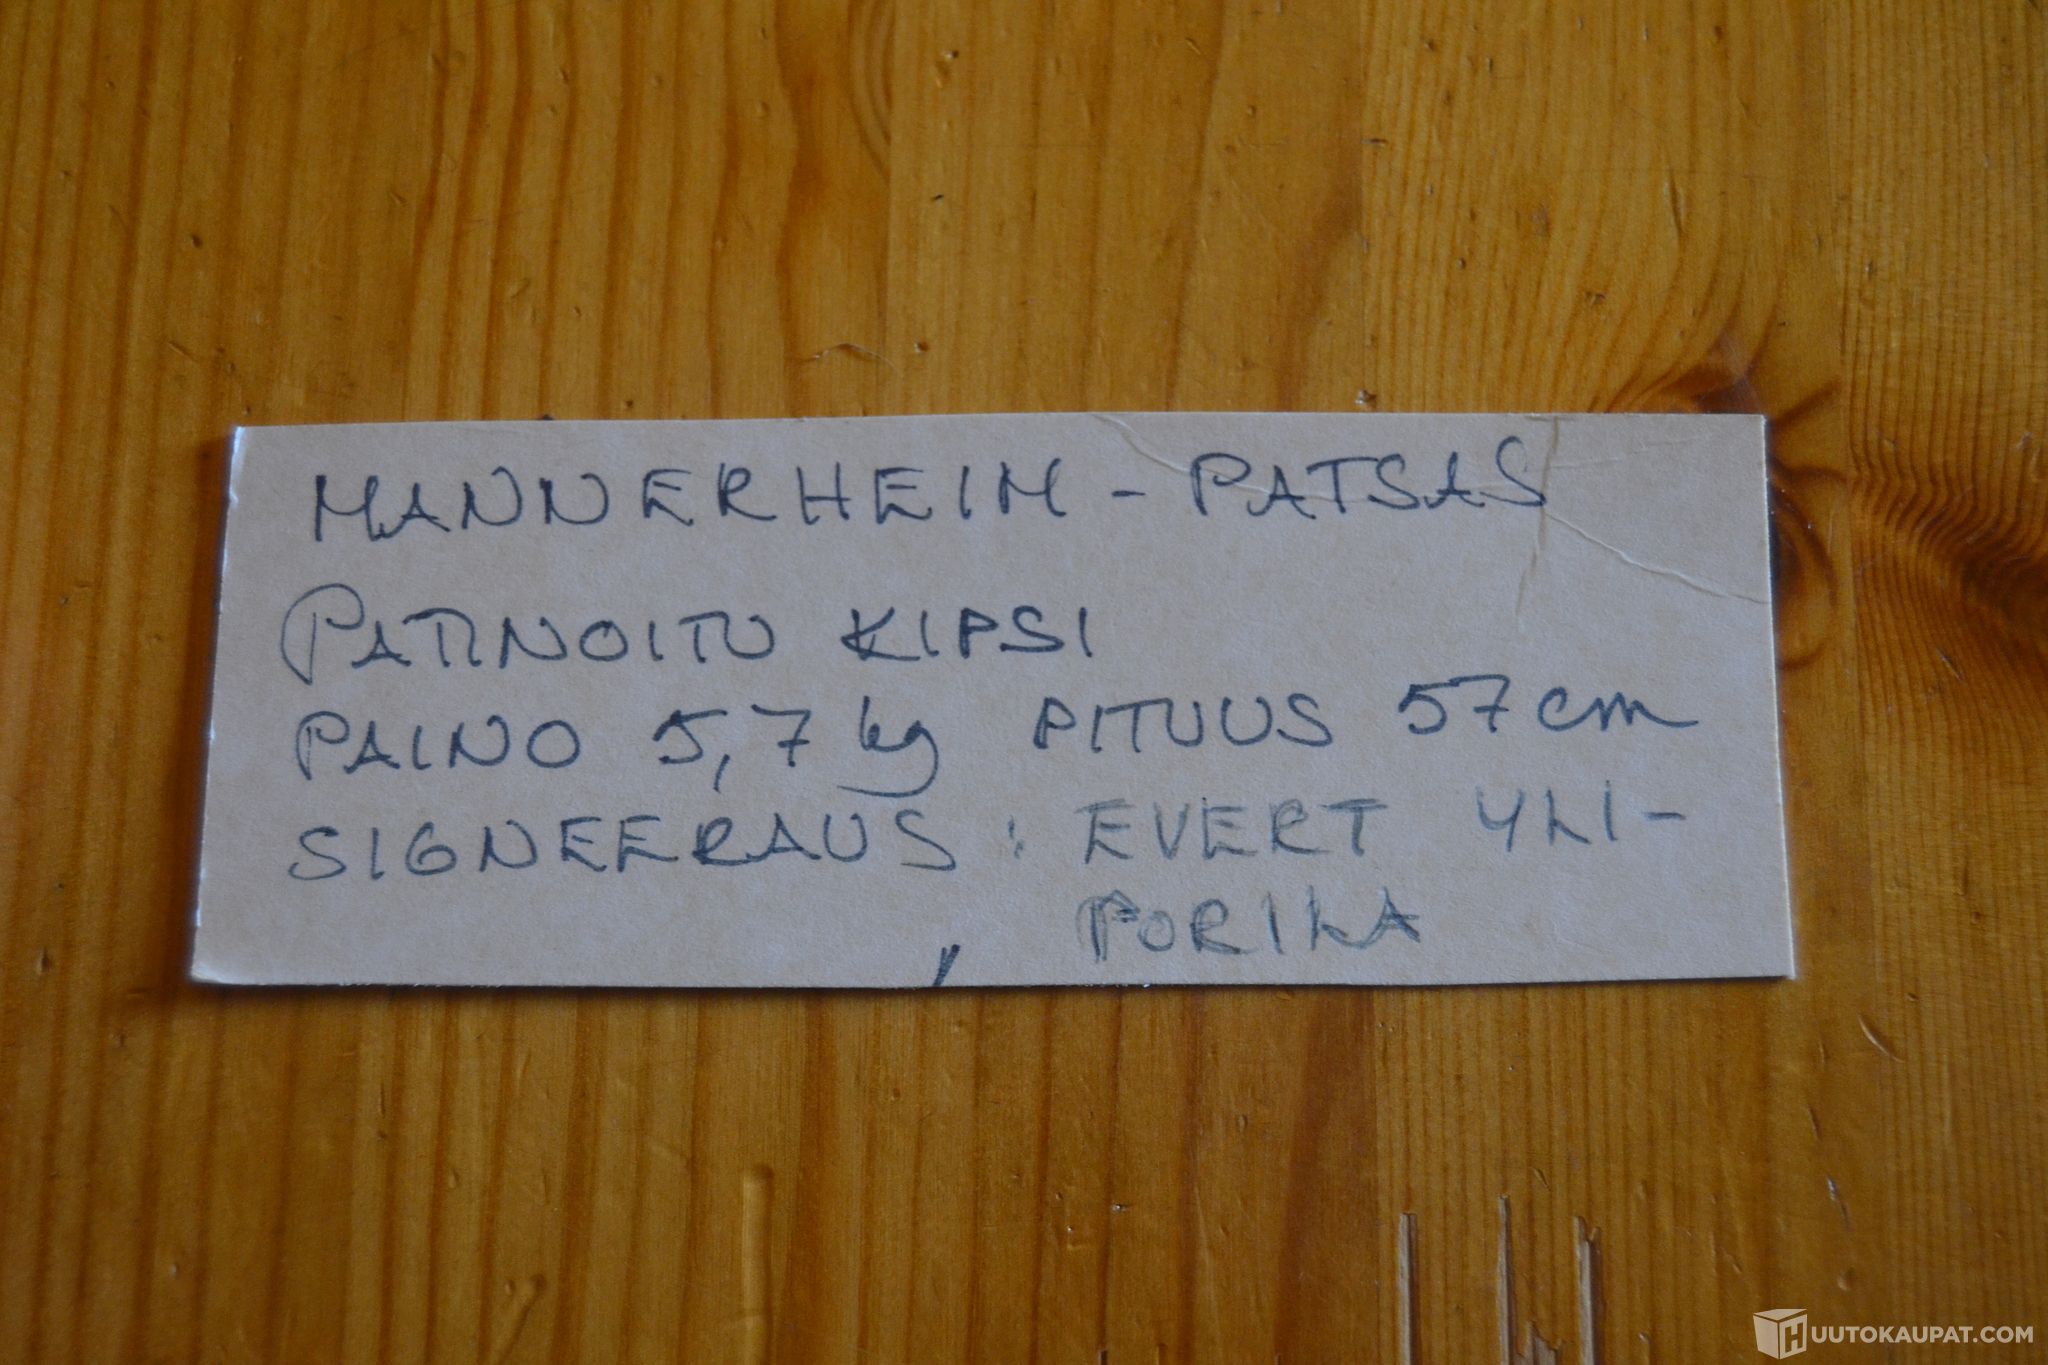 MANNERHEIM - PATSAS
PATINOITU KIPSI
PAINO 5,7 kg PITUUS 57 cm
SIGNEERAUS : EVERT YLI-
PORILA
HUUTOKAUPAT.COM